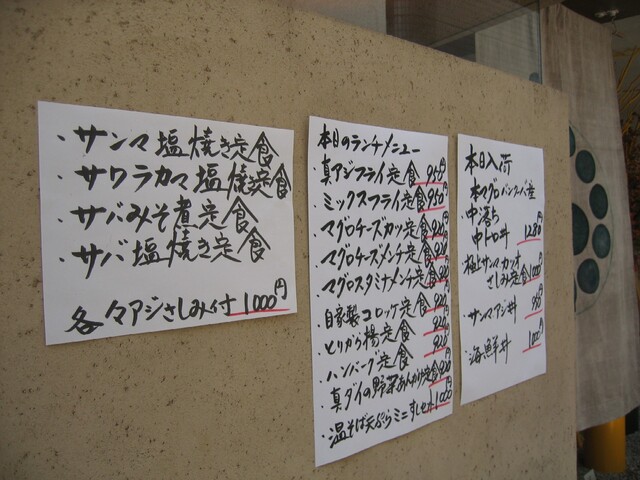 ・サンマ塩焼き定食
・サワラカマ塩焼定食
・サバみそ煮定食
・サバ塩焼き定食
各々アジさしみ付 1000円
本日のランチメニュー
・真アジフライ定食 950円
・ミックスフライ定食 950円
・マグロチーズカツ定食 920円
・マグロチーズメンチ定食 920
・マグロスタミナメンチ定食 920
・自家製コロッケ定食 920
・とりから揚定食 920
・ハンバーグ定食 920
・真ダイの野菜あんかけ定食 920
・温そば天ぷらミニすしセット 1000
本日入荷
本マグロ
中落ち
中トロ丼 1280円
・極上サンマカツオ
さしみ定食 1000
・サンマアジ丼
・海鮮丼